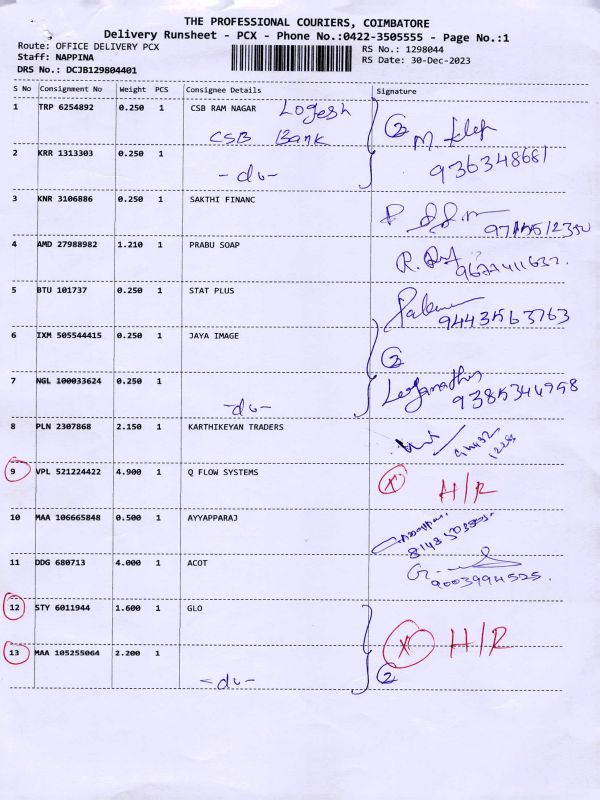 THE PROFESSIONAL COURIERS, COIMBATORE
Delivery Runsheet - PCX - Phone No.:0422-3505555 - Page No.:1
Route: OFFICE DELIVERY PCX RS No.: 1298044
Staff: NAPPINA RS Date: 30-Dec-2023
DRS No.: DCJB129804401
S No Consignment No Weight PCS Consignee Details Signature
1 TRP 6254892 0.250 1 CSB RAM NAGAR Logesh
CSB Bank 2
2 KRR 1313303 0.250 1 936348681
-do-
3 KNR 3106886 0.250 1 SAKTHI FINANC
4 AMD 27988982 1.210 1 PRABU SOAP
5 BTU 101737 0.250 1 STAT PLUS
9443563763
6 IXM 505544415 0.250 1 JAYA IMAGE
2
7 NGL 100033624 0.250 1
-do- 9385344958
8 PLN 2307868 2.150 1 KARTHIKEYAN TRADERS
9 VPL 521224422 4.900 1 Q FLOW SYSTEMS X H/R
10 MAA 106665848 0.500 1 AYYAPPARAJ
11 DDG 680713 4.000 1 ACOT
90039994525.
12 STY 6011944 1.600 1 GLO
X H/R
13 MAA 105255064 2.200 1
-do- 2